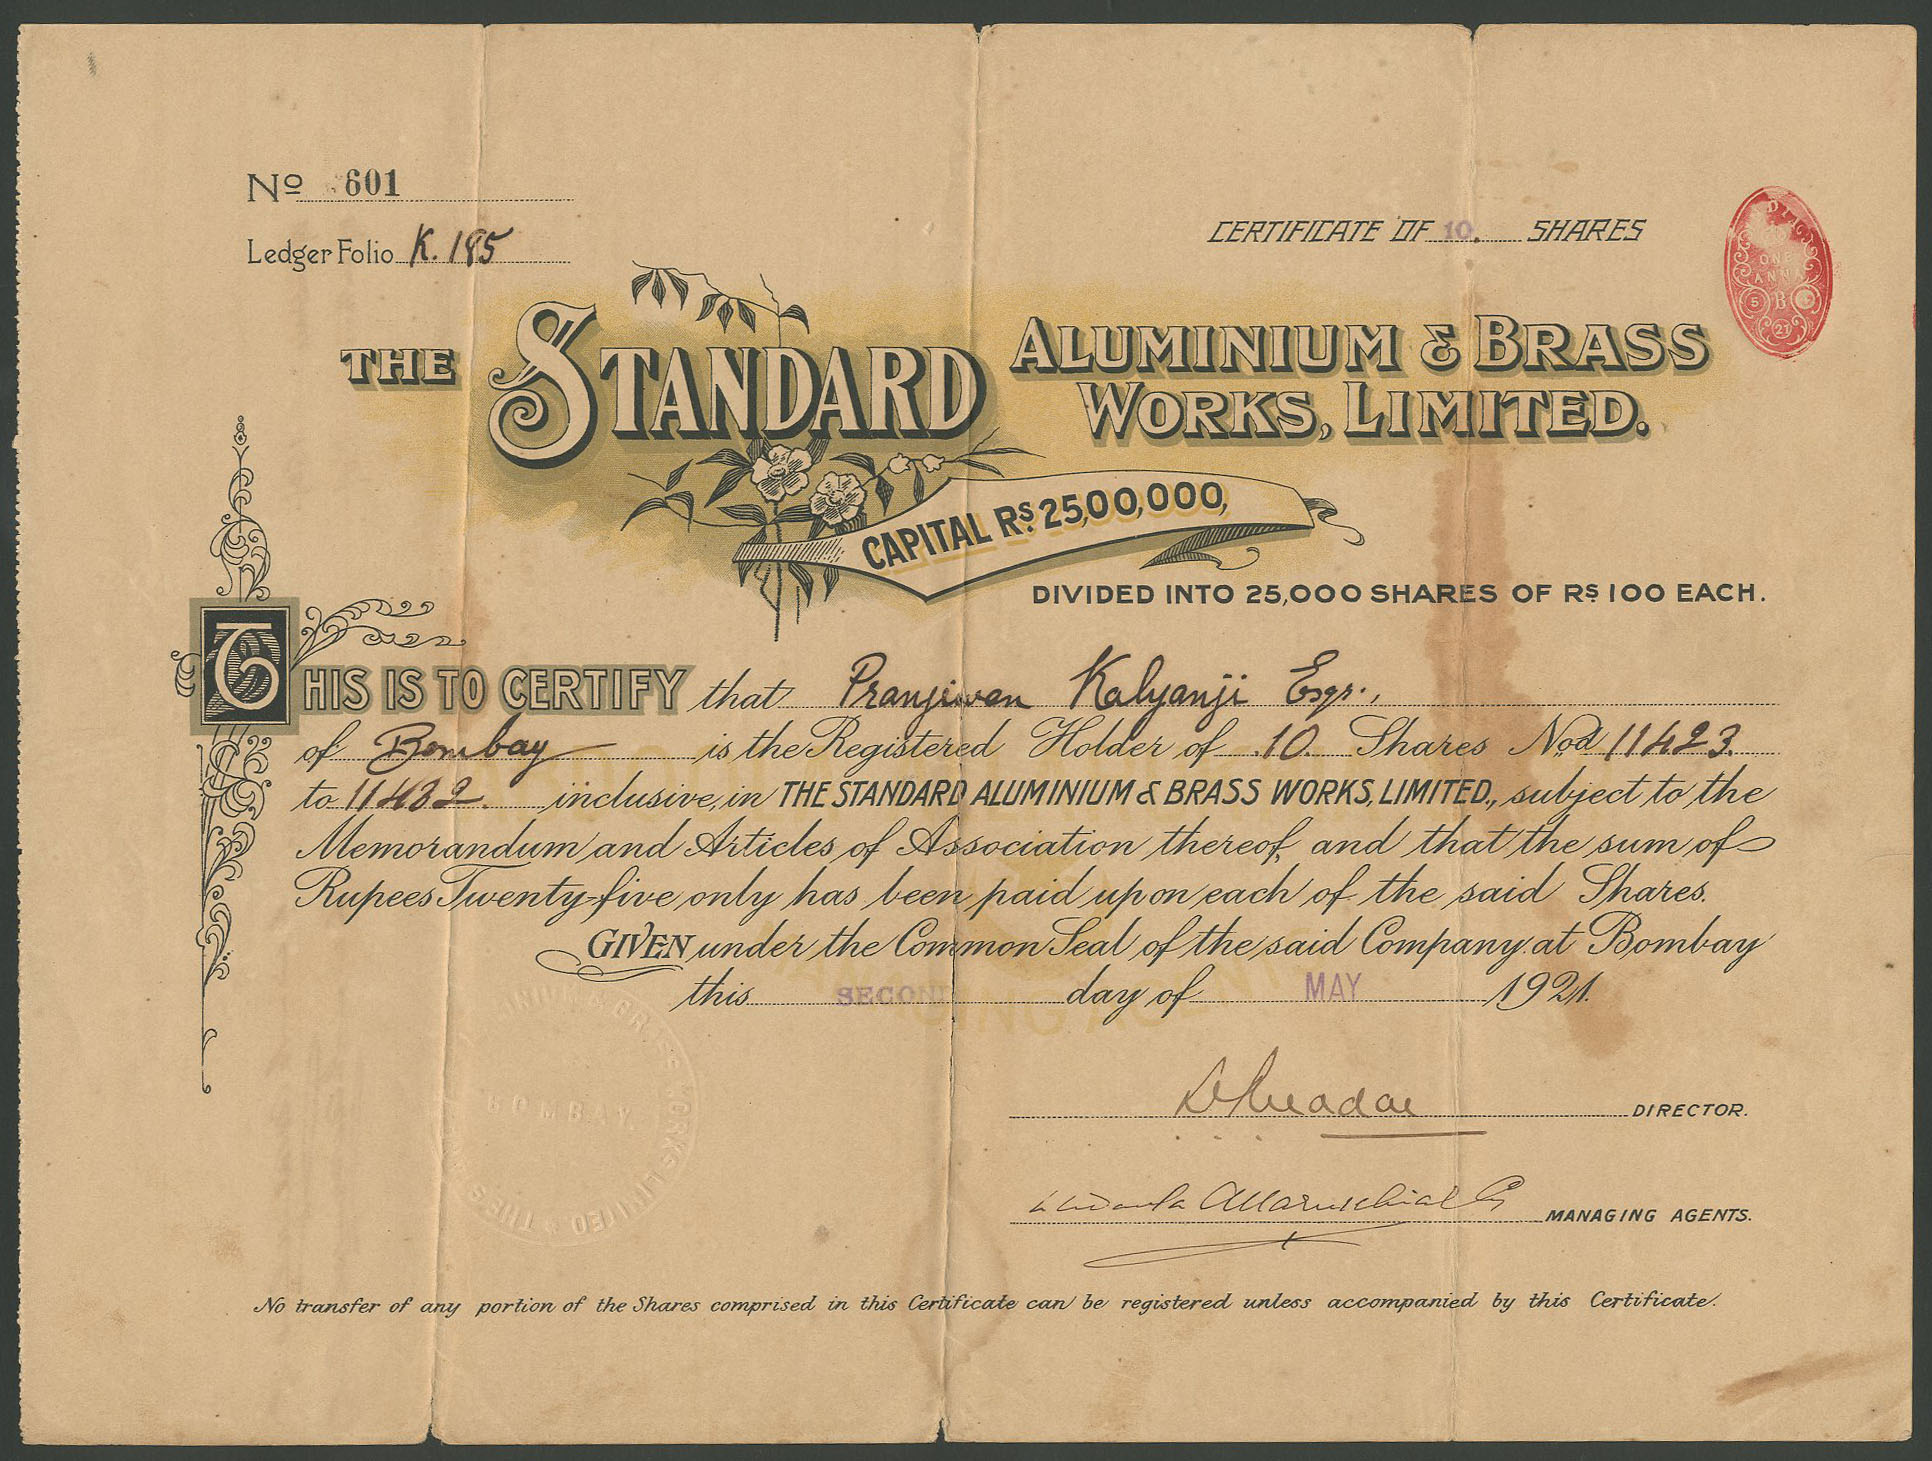 No 601
Ledger Folio K. 185
CERTIFICATE OF 10. SHARES
ONE ANNA
5 B
21
THE STANDARD ALUMINIUM & BRASS
WORKS, LIMITED.
CAPITAL Rs. 25,00,000,
DIVIDED INTO 25,000 SHARES OF Rs 100 EACH.
THIS IS TO CERTIFY that Pranjiwan Kalyanji Esqr.,
of Bombay is the Registered Holder of 10. Shares Nod 11423.
to 11432. inclusive, in THE STANDARD ALUMINIUM & BRASS WORKS, LIMITED., subject to the
Memorandum and Articles of Association thereof, and that the sum of
Rupees Twenty-five only has been paid upon each of the said Shares.
GIVEN under the Common Seal of the said Company at Bombay
this SECOND day of MAY 1921.
BOMBAY.
DIRECTOR.
MANAGING AGENTS.
No transfer of any portion of the Shares comprised in this Certificate can be registered unless accompanied by this Certificate.